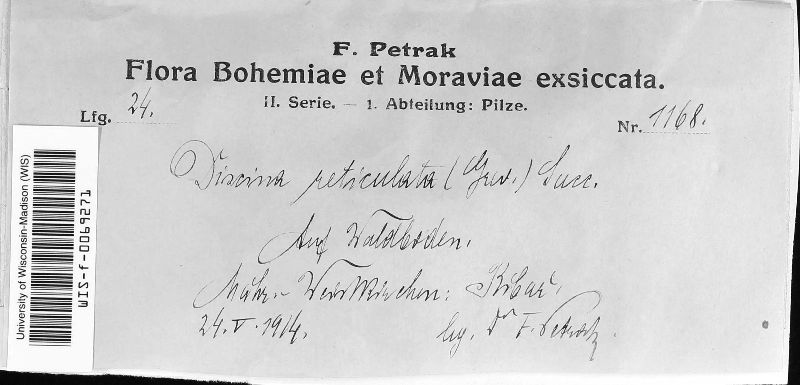 F. Petrak
Flora Bohemiae et Moraviae exsiccata.
II. Serie. — 1. Abteilung: Pilze.
Lfg. 24.
Nr. 1168.
Discina reticulata (Grev.) Sacc.
Auf Waldboden.
Mähr.-Weisskirchen: Ribař,
24. V. 1914. lg. Dr F. Petrak.
University of Wisconsin-Madison (WIS)
WIS-f-0069271